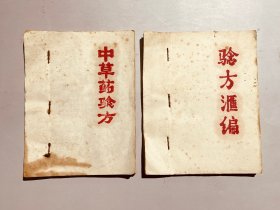 中草药验方
验方汇编